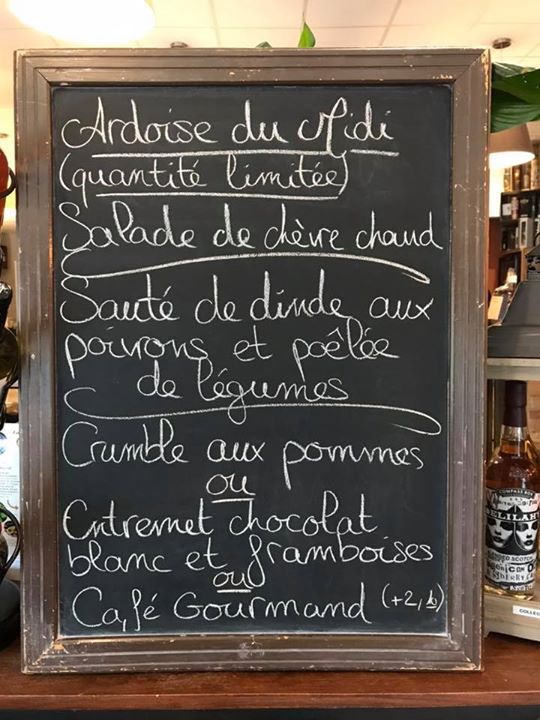 Ardoise du Midi
(quantité limitée)
Salade de chèvre chaud
Sauté de dinde aux
poivrons et poêlée
de légumes
Crumble aux pommes
ou
Entremet chocolat
blanc et framboises
ou
Café Gourmand
COMPASS BOX
DELILAH